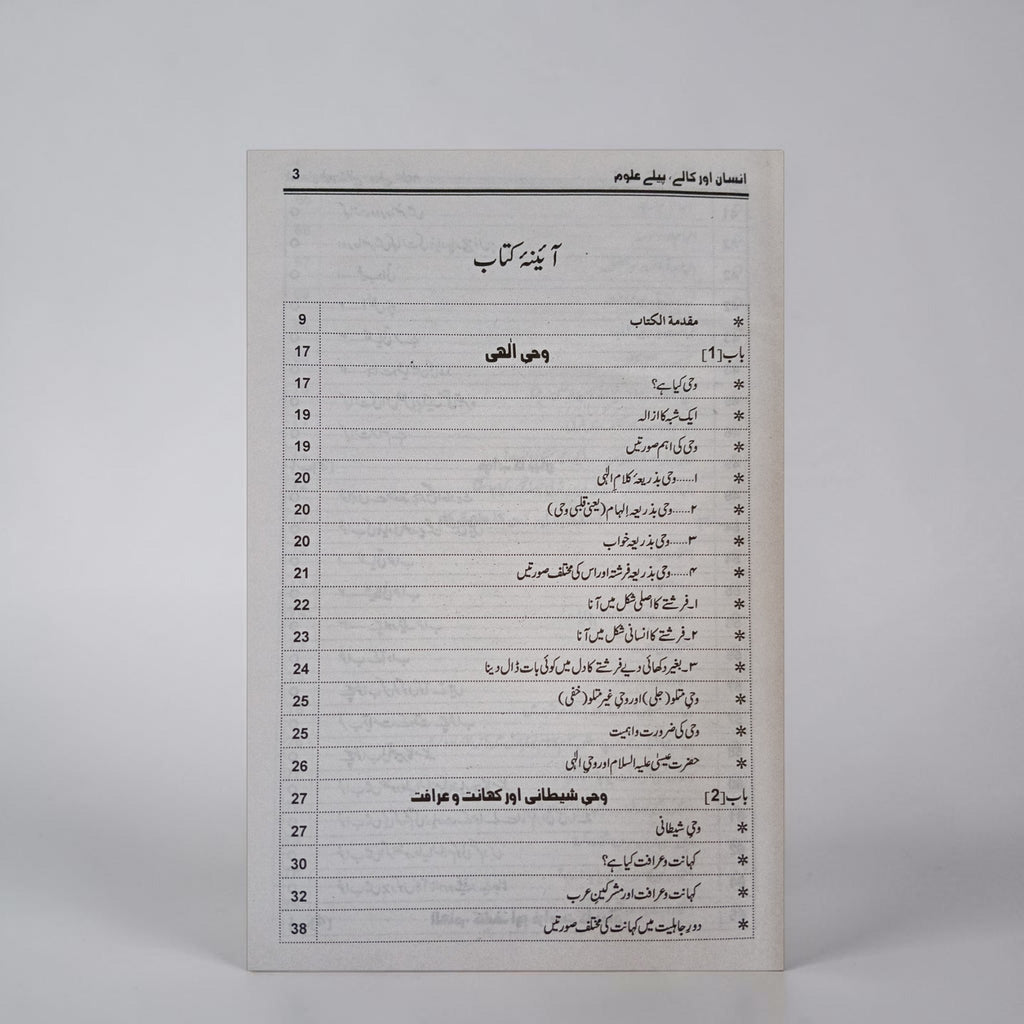 انسان اور کالے، پیلے علوم 3
آئینۂ کتاب
* مقدمة الکتاب 9
باب[1] وحی الٰهی 17
* وحی کیا ہے؟ 17
* ایک شبہ کا ازالہ 19
* وحی کی اہم صورتیں 19
* ۱......وحی بذریعۂ کلامِ الٰہی 20
* ۲......وحی بذریعہ الہام (یعنی قلبی وحی) 20
* ۳......وحی بذریعہ خواب 20
* ۴......وحی بذریعہ فرشتہ اور اس کی مختلف صورتیں 21
* ۱۔فرشتے کا اصلی شکل میں آنا 22
* ۲۔فرشتے کا انسانی شکل میں آنا 23
* ۳۔بغیر دکھائی دیے فرشتے کا دل میں کوئی بات ڈال دینا 24
* وحیِ متلو (جلی) اور وحیِ غیر متلو (خفی) 25
* وحی کی ضرورت و اہمیت 25
* حضرت عیسیٰ علیہ السلام اور وحیِ الٰہی 26
باب[2] وحیِ شیطانی اور کهانت و عرافت 27
* وحیِ شیطانی 27
* کہانت و عرافت کیا ہے؟ 30
* کہانت و عرافت اور مشرکینِ عرب 32
* دورِ جاہلیت میں کہانت کی مختلف صورتیں 38